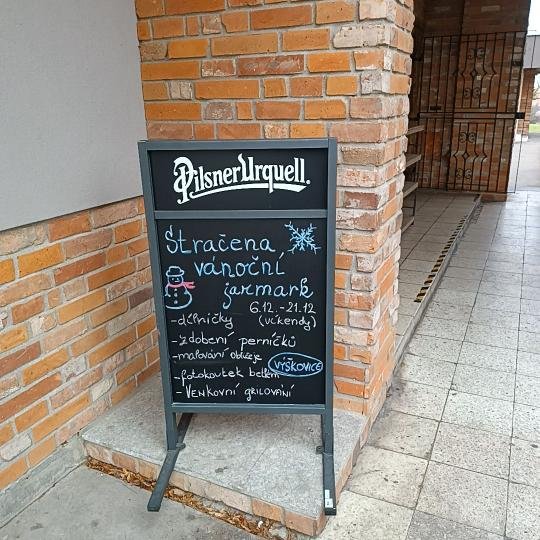 Pilsner Urquell.
Stračena
vánoční
jarmark
6.12.-21.12
-dílničky (víkendy)
-zdobení perníčků
-malování obličeje
VÝŠKOVICE
-fotokoutek betlém
-VENKOVNÍ GRILOVÁNÍ